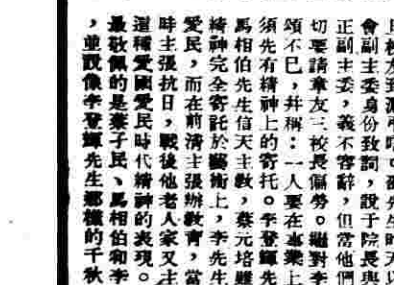 先生昨天以
會副主委身份致詞，說于院長與
正副主委，義不容辭，但當他們
切要請章友三校長偏勞。繼對李
頌不已，幷稱：一人要在事業上
須先有精神上的寄托。李登輝先
馬相伯先生信天主教，蔡元培雖
精神完全寄託於藝術上，李先生
愛民，而在前清主張辦教育，當
時主張抗日，戰後他老人家又主
這種愛國愛民時代精神的表現。
最敬佩的是蔡孑民、馬相伯和李
，並說像李登輝先生那樣的千秋